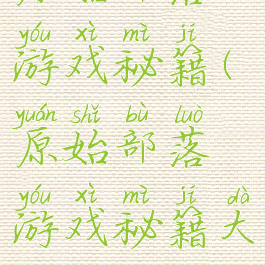 yóu xì mì jí
游戏秘籍(
yuán shǐ bù luò
原始部落
yóu xì mì jí dà
游戏秘籍大